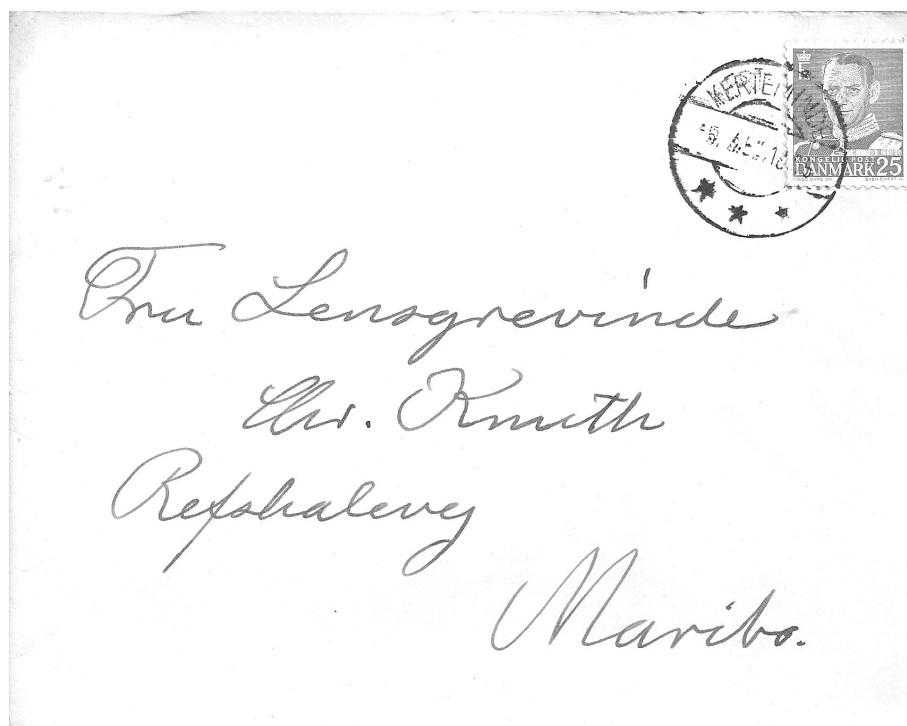 KERTEMINDE
KONGELIG POST
DANMARK 25
Fru Lensgrevinde
Chr. Knuth
Refshalevej
Maribo.